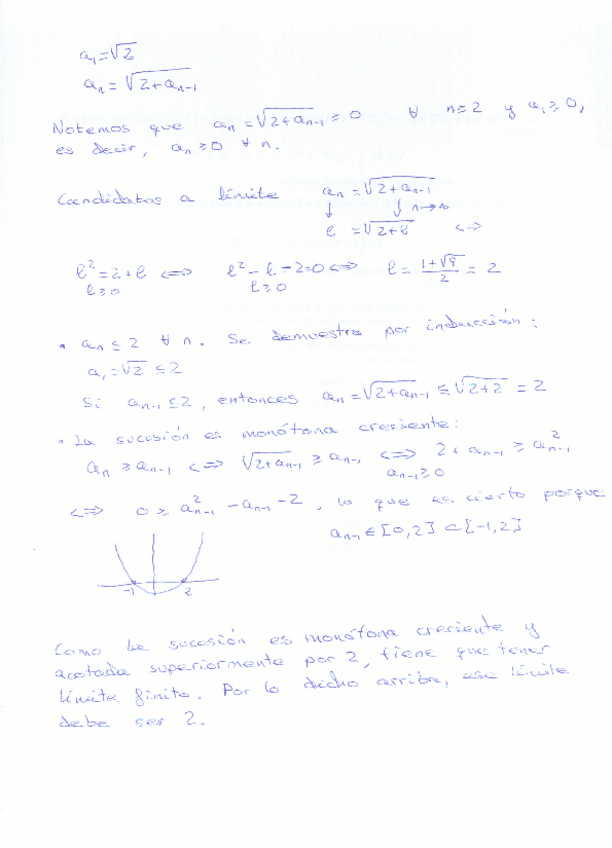 a₁ = √2
aₙ = √(2+aₙ₋₁)
Notemos que aₙ = √(2+aₙ₋₁) ≥ 0 ∀ n≥2 y a₁ ≥ 0,
es decir, aₙ ≥ 0 ∀ n.
Candidatos a límite aₙ = √(2+aₙ₋₁)
↓ ↓ n→∞
ℓ = √(2+ℓ) <=>
ℓ² = 2+ℓ <=> ℓ² - ℓ - 2 = 0 <=> ℓ = (1+√9)/2 = 2
ℓ ≥ 0 ℓ ≥ 0
• aₙ ≤ 2 ∀ n. Se demuestra por inducción:
a₁ = √2 ≤ 2
Si aₙ₋₁ ≤ 2, entonces aₙ = √(2+aₙ₋₁) ≤ √(2+2) = 2
• La sucesión es monótona creciente:
aₙ ≥ aₙ₋₁ <=> √(2+aₙ₋₁) ≥ aₙ₋₁ <=> 2+aₙ₋₁ ≥ aₙ₋₁²
aₙ₋₁ ≥ 0
<=> 0 ≥ aₙ₋₁² - aₙ₋₁ - 2, lo que es cierto porque
aₙ₋₁ ∈ [0,2] ⊂ [-1,2]
-1 2
Como la sucesión es monótona creciente y
acotada superiormente por 2, tiene que tener
límite finito. Por lo dicho arriba, ese límite
debe ser 2.